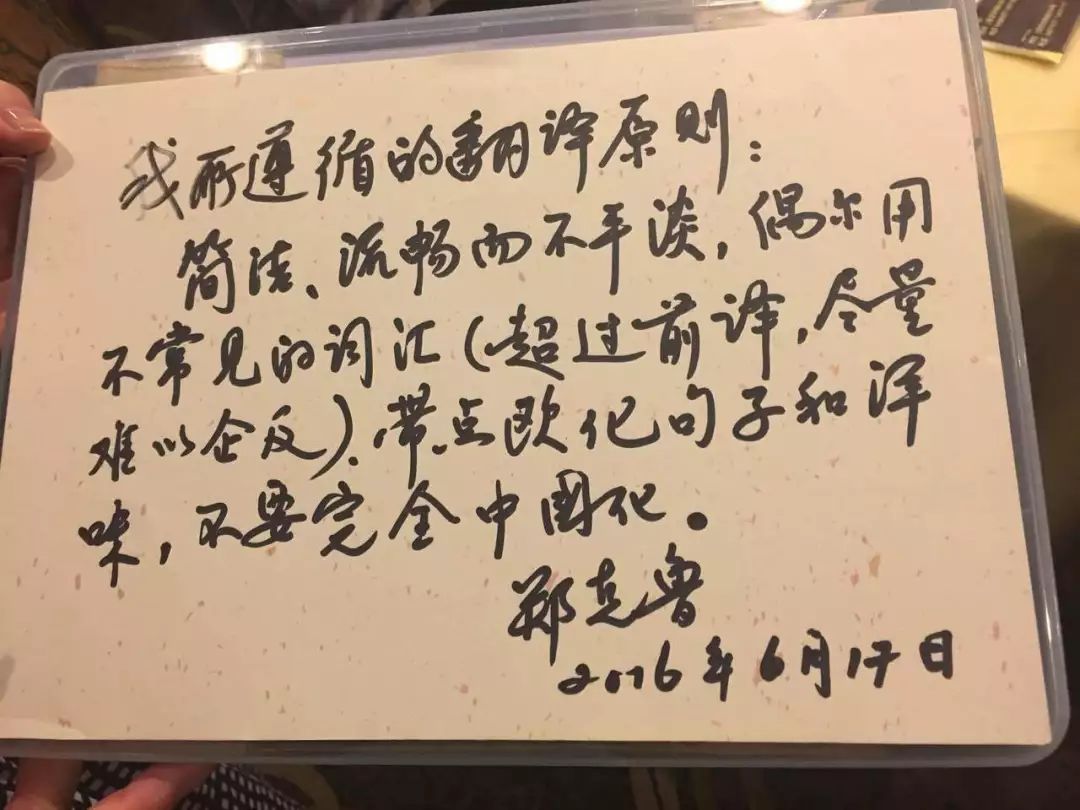 我所遵循的翻译原则：
简洁、流畅而不平淡，偶尔用
不常见的词汇(超过前译，尽量
难以企及)、带点欧化句子和洋
味，不要完全中国化。
郑克鲁
2016年6月17日